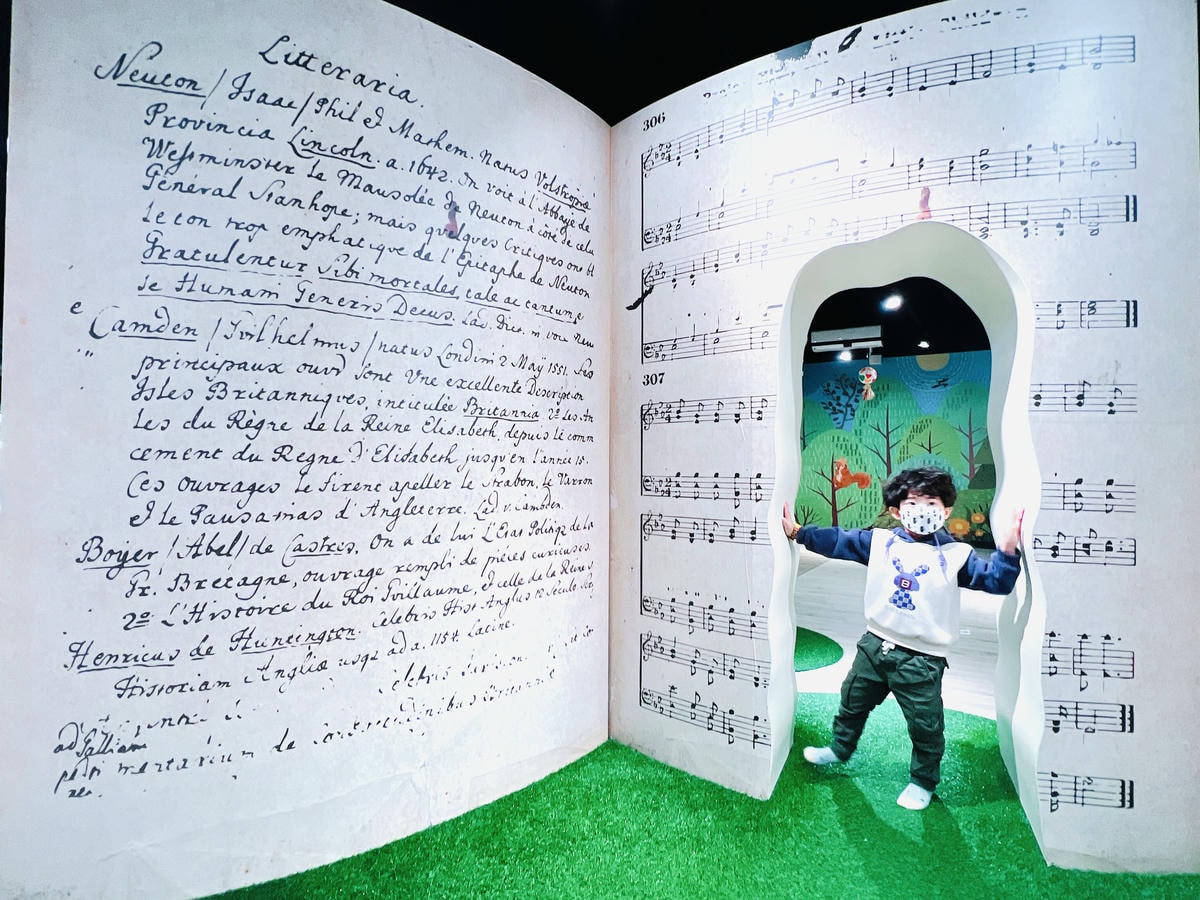 Litteraria.
Neuton / Isaac / Phil & Mathem. Natus Volstropiæ
Provincia Lincoln. a. 1642. On voit a l'Abbaye de
Westminster le Mausolée de Neuton à côté de celui
Général Stanhope; mais quelques Critiques ont
le ton trop emphatique de l'Epitaphe de Neuton
Gratulentur Sibi mortales, tale ac tantum
se Humani Generis Decus. Lad. Dict. voce
e Camden / Guilhelmus / natus Londini 2 Maÿ 1551. Ses
principaux ouvr sont Une excellente Description
Isles Britanniques, intitulée Britannia. 2º Les An
les du Règne de la Reine Elisabeth, depuis le comm
cement du Regne d'Elisabeth jusqu'en l'année 15.
Ces ouvrages le firent apeller le Strabon, le Varron
et le Pausanias d'Angleterre. Lad. v. Cambden.
Boÿer / Abel / de Castres. On a de lui L'Etat Politiqe de la
Gr. Bretagne, ouvrage rempli de piéces curieuses.
2º. L'Histoire du Roi Guillaume, et celle de la Reine
Henricus de Huntington. Celebris Hist. Anglus 12 Seculo
Historiam Angliæ usqe ad a. 1154. Latine.
306
307
B